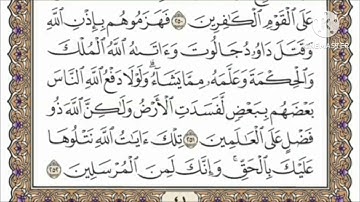 عَلَى ٱلْقَوْمِ ٱلْكَٰفِرِينَ ۝٢٥٠ فَهَزَمُوهُم بِإِذْنِ ٱللَّهِ
وَقَتَلَ دَاوُۥدُ جَالُوتَ وَءَاتَىٰهُ ٱللَّهُ ٱلْمُلْكَ
وَٱلْحِكْمَةَ وَعَلَّمَهُۥ مِمَّا يَشَآءُ ۗ وَلَوْلَا دَفْعُ ٱللَّهِ ٱلنَّاسَ
بَعْضَهُم بِبَعْضٍ لَّفَسَدَتِ ٱلْأَرْضُ وَلَٰكِنَّ ٱللَّهَ ذُو
فَضْلٍ عَلَى ٱلْعَٰلَمِينَ ۝٢٥١ تِلْكَ ءَايَٰتُ ٱللَّهِ نَتْلُوهَا
عَلَيْكَ بِٱلْحَقِّ ۚ وَإِنَّكَ لَمِنَ ٱلْمُرْسَلِينَ ۝٢٥٢
٤١